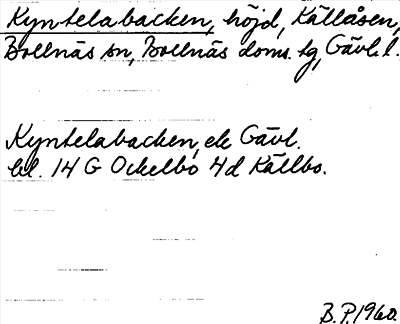 Kyntelabacken, höjd, Källåsen,
Bollnäs sn, Bollnäs doms. tg, Gävl. l.
Kyntelabacken, ek Gävl.
bl. 14 G Ockelbo 4d Källbo.
B.P. 1960.